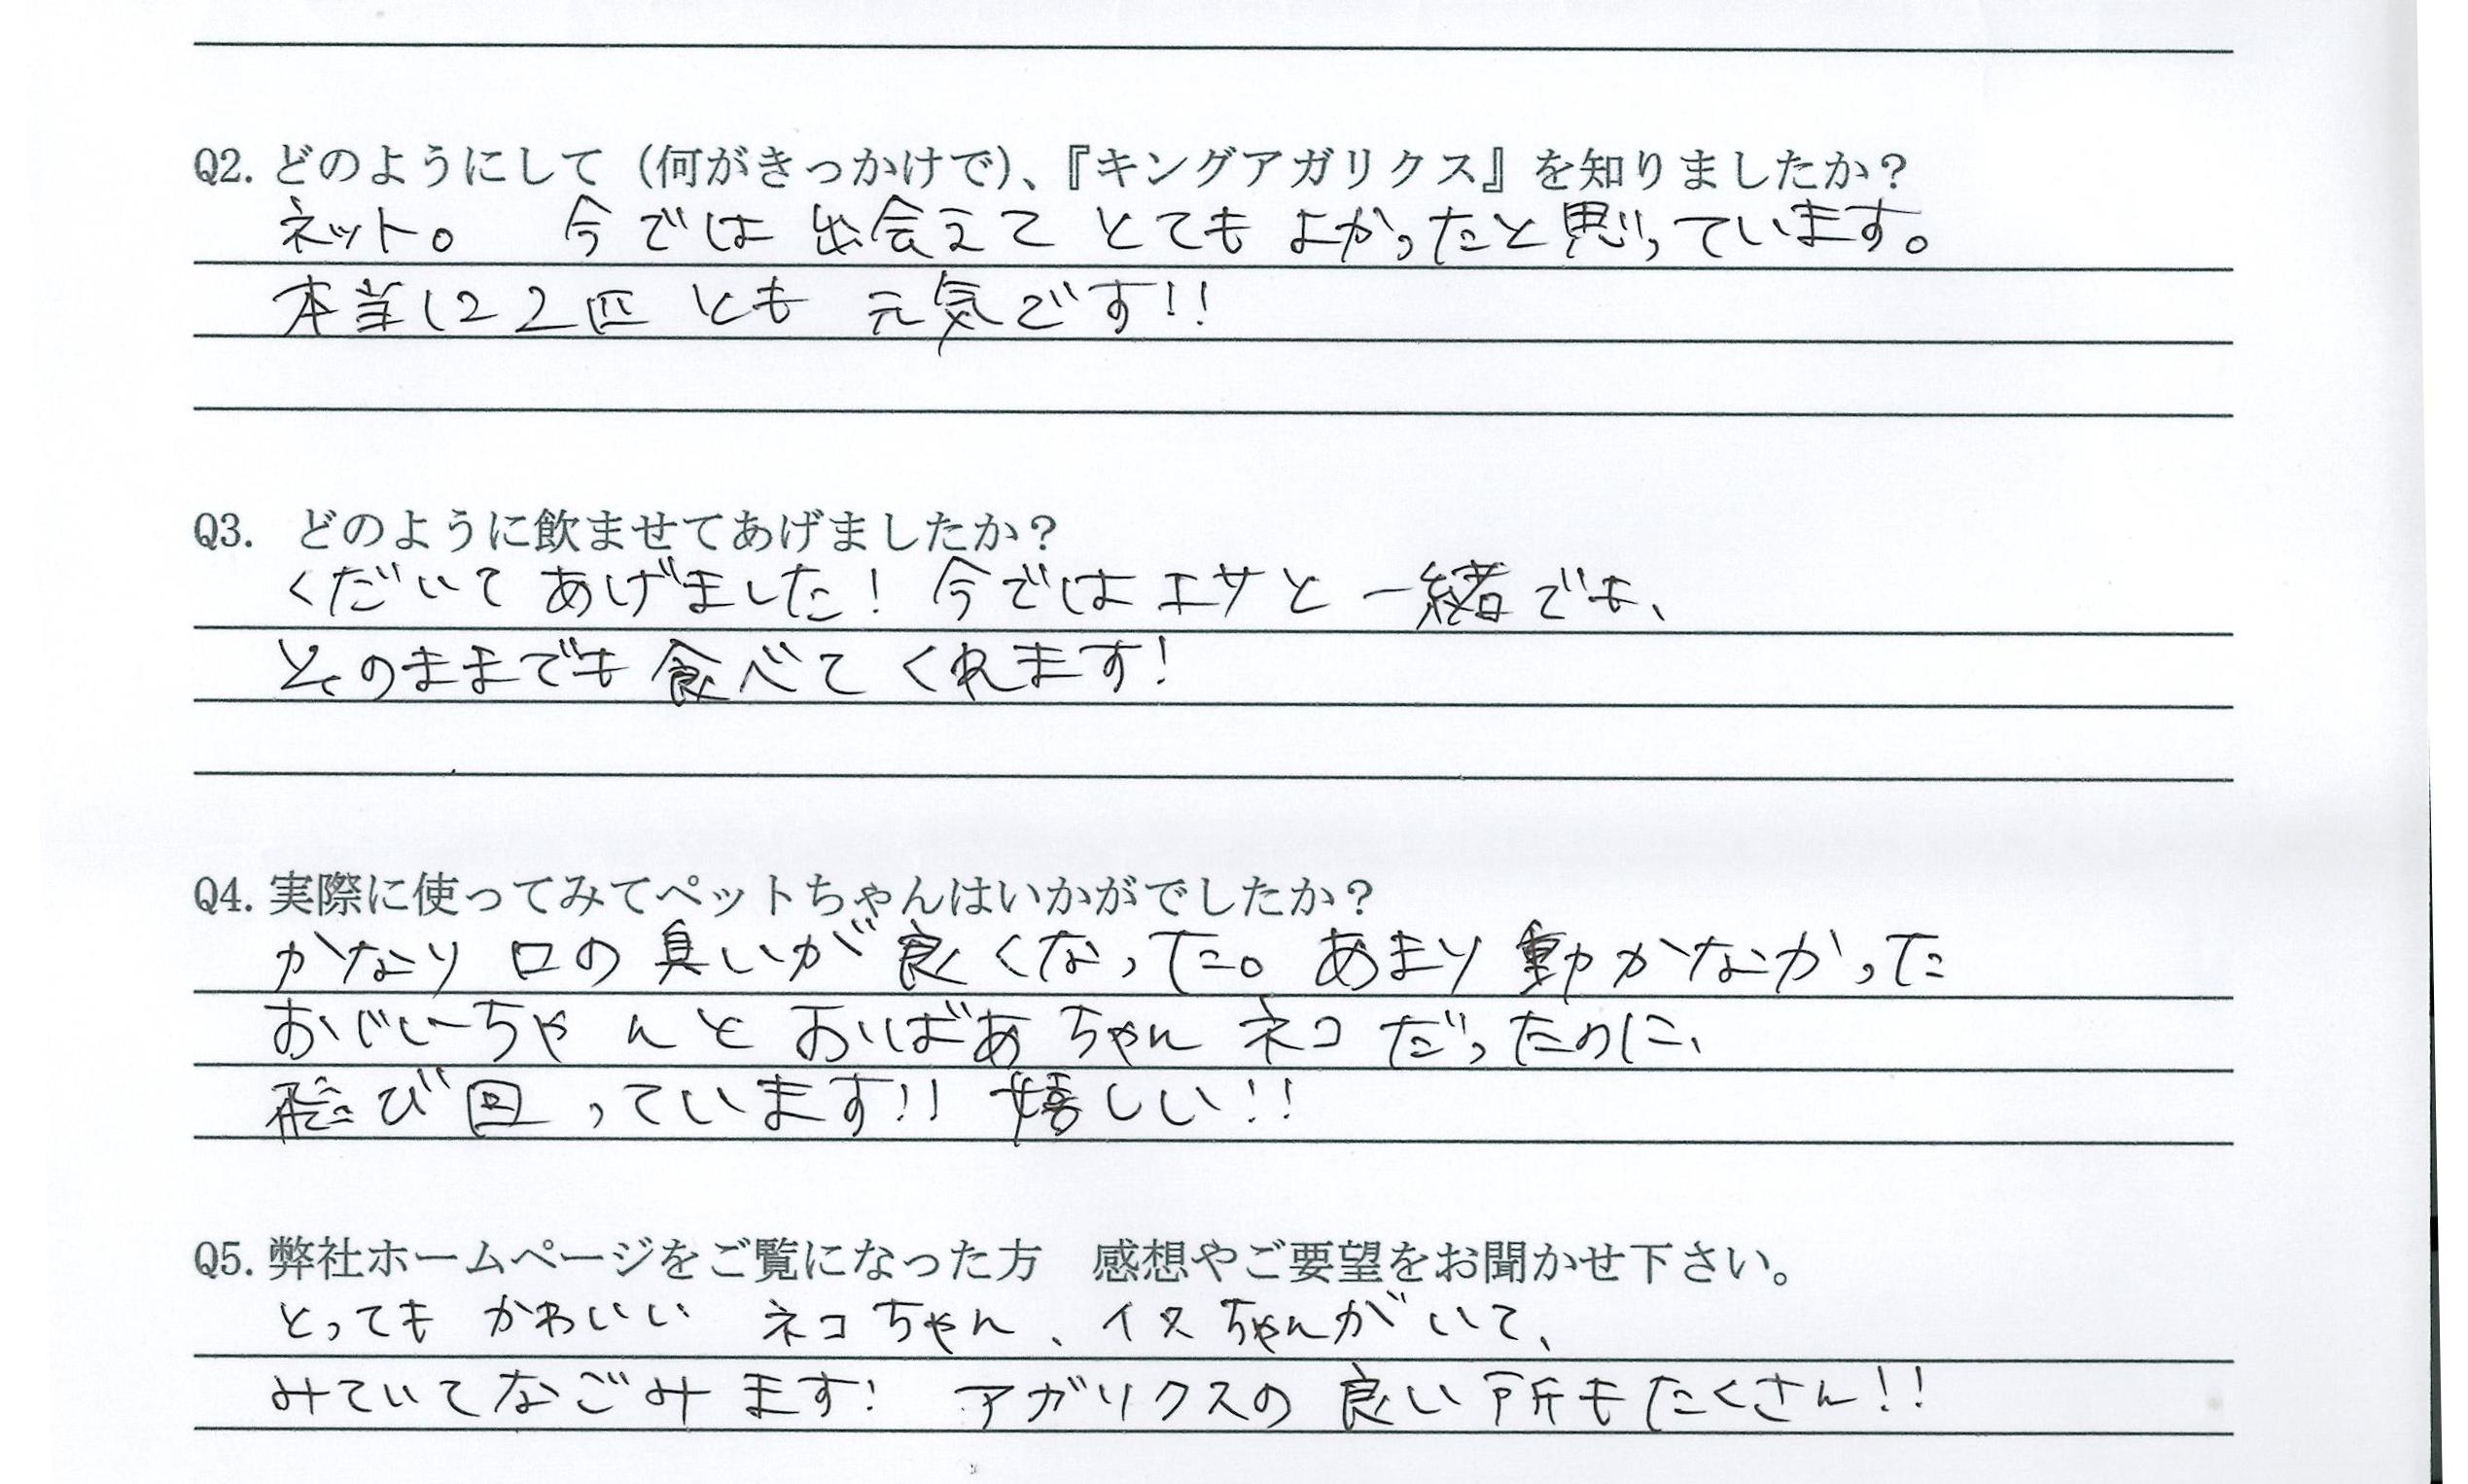 Q2. どのようにして（何がきっかけで）、『キングアガリクス』を知りましたか？
ネット。 今では出会えてとてもよかったと思っています。
本当に2匹とも元気です!!
Q3. どのように飲ませてあげましたか？
くだいてあげました! 今ではエサと一緒でも、
そのままでも食べてくれます!
Q4. 実際に使ってみてペットちゃんはいかがでしたか？
かなり口の臭いが良くなった。あまり動かなかった
おじいーちゃんとおばあちゃんネコだったのに、
飛び回っています!! 嬉しい!!
Q5. 弊社ホームページをご覧になった方　感想やご要望をお聞かせ下さい。
とってもかわいい ネコちゃん、イヌちゃんがいて、
みていてなごみます! アガリクスの良い所もたくさん!!